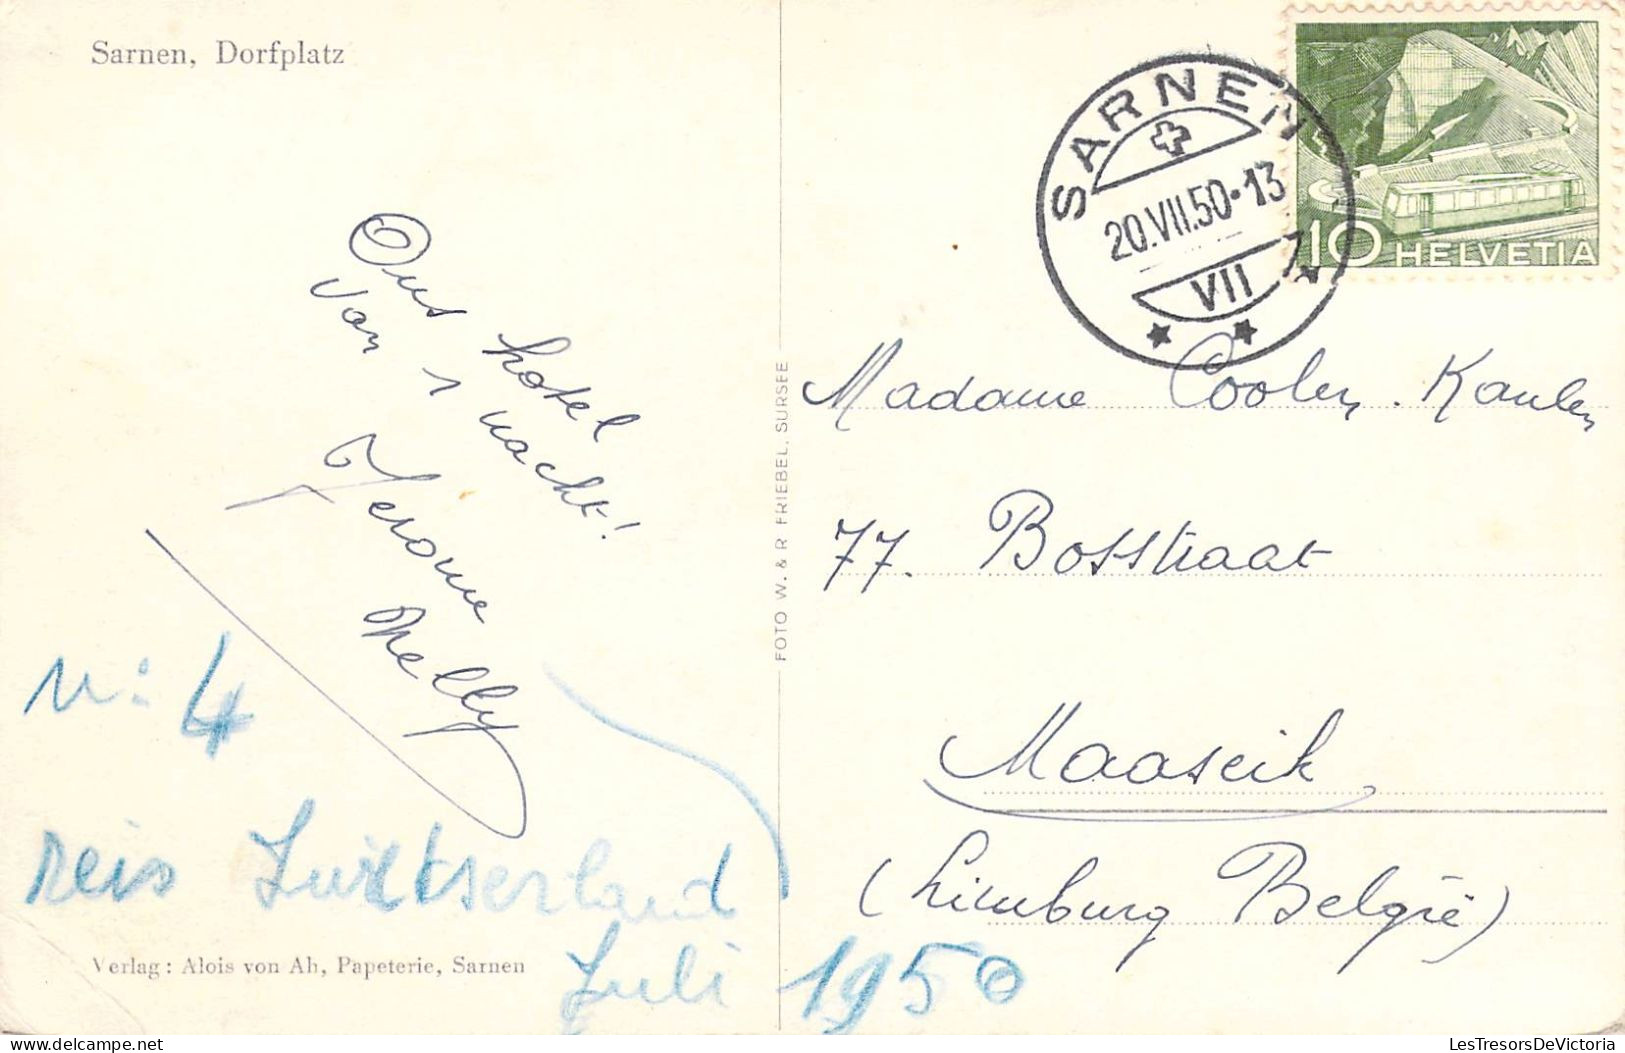 Sarnen, Dorfplatz
Ons hotel
van 1 nacht!
Jerome
Nelly
N: 4
reis Zwitserland
Juli 1950
Verlag: Alois von Ah, Papeterie, Sarnen
FOTO W. & R. FRIEBEL, SURSEE
SARNEN
20.VII.50-13
VII
10 HELVETIA
Madame Coolen. Kaulen
77. Bosstraat
Maaseik
(Limburg België)
LesTresorsDeVictoria